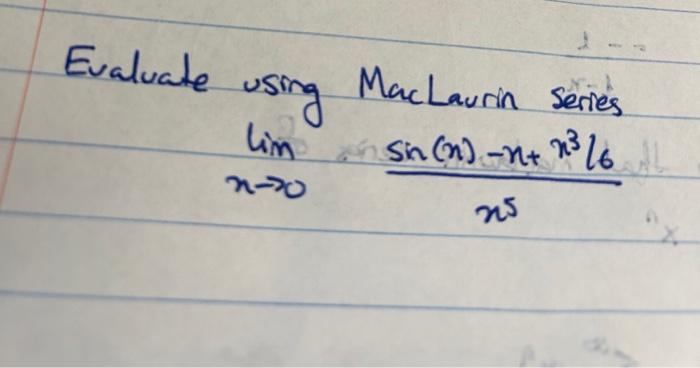 Evaluate using MacLaurin series
lim sin(x) - x + x³/6
x→0 x⁵